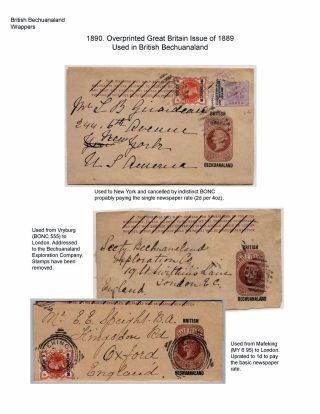 British Bechuanaland
Wrappers
1890. Overprinted Great Britain Issue of 1889
Used in British Bechuanaland
Mr L B Girardeau
244. 6th Avenue
New York
U S America
BRITISH
BECHUANALAND
Used to New York and cancelled by indistinct BONC
propably paying the single newspaper rate (2d per 4oz).
Used from Vryburg
(BONC 555) to
London. Addressed
to the Bechuanaland
Exploration Company.
Stamps have been
removed.
BRITISH
Secty Bechuanaland
Exploration Co
19 St Swithin's Lane
London E.C.
England
BECHUANALAND
Mr. E.E. Speight B.A.
Kingston Rd
Oxford
England
BRITISH
BECHUANALAND
Used from Mafeking
(MY 6 95) to London.
Uprated to 1d to pay
the basic newspaper
rate.